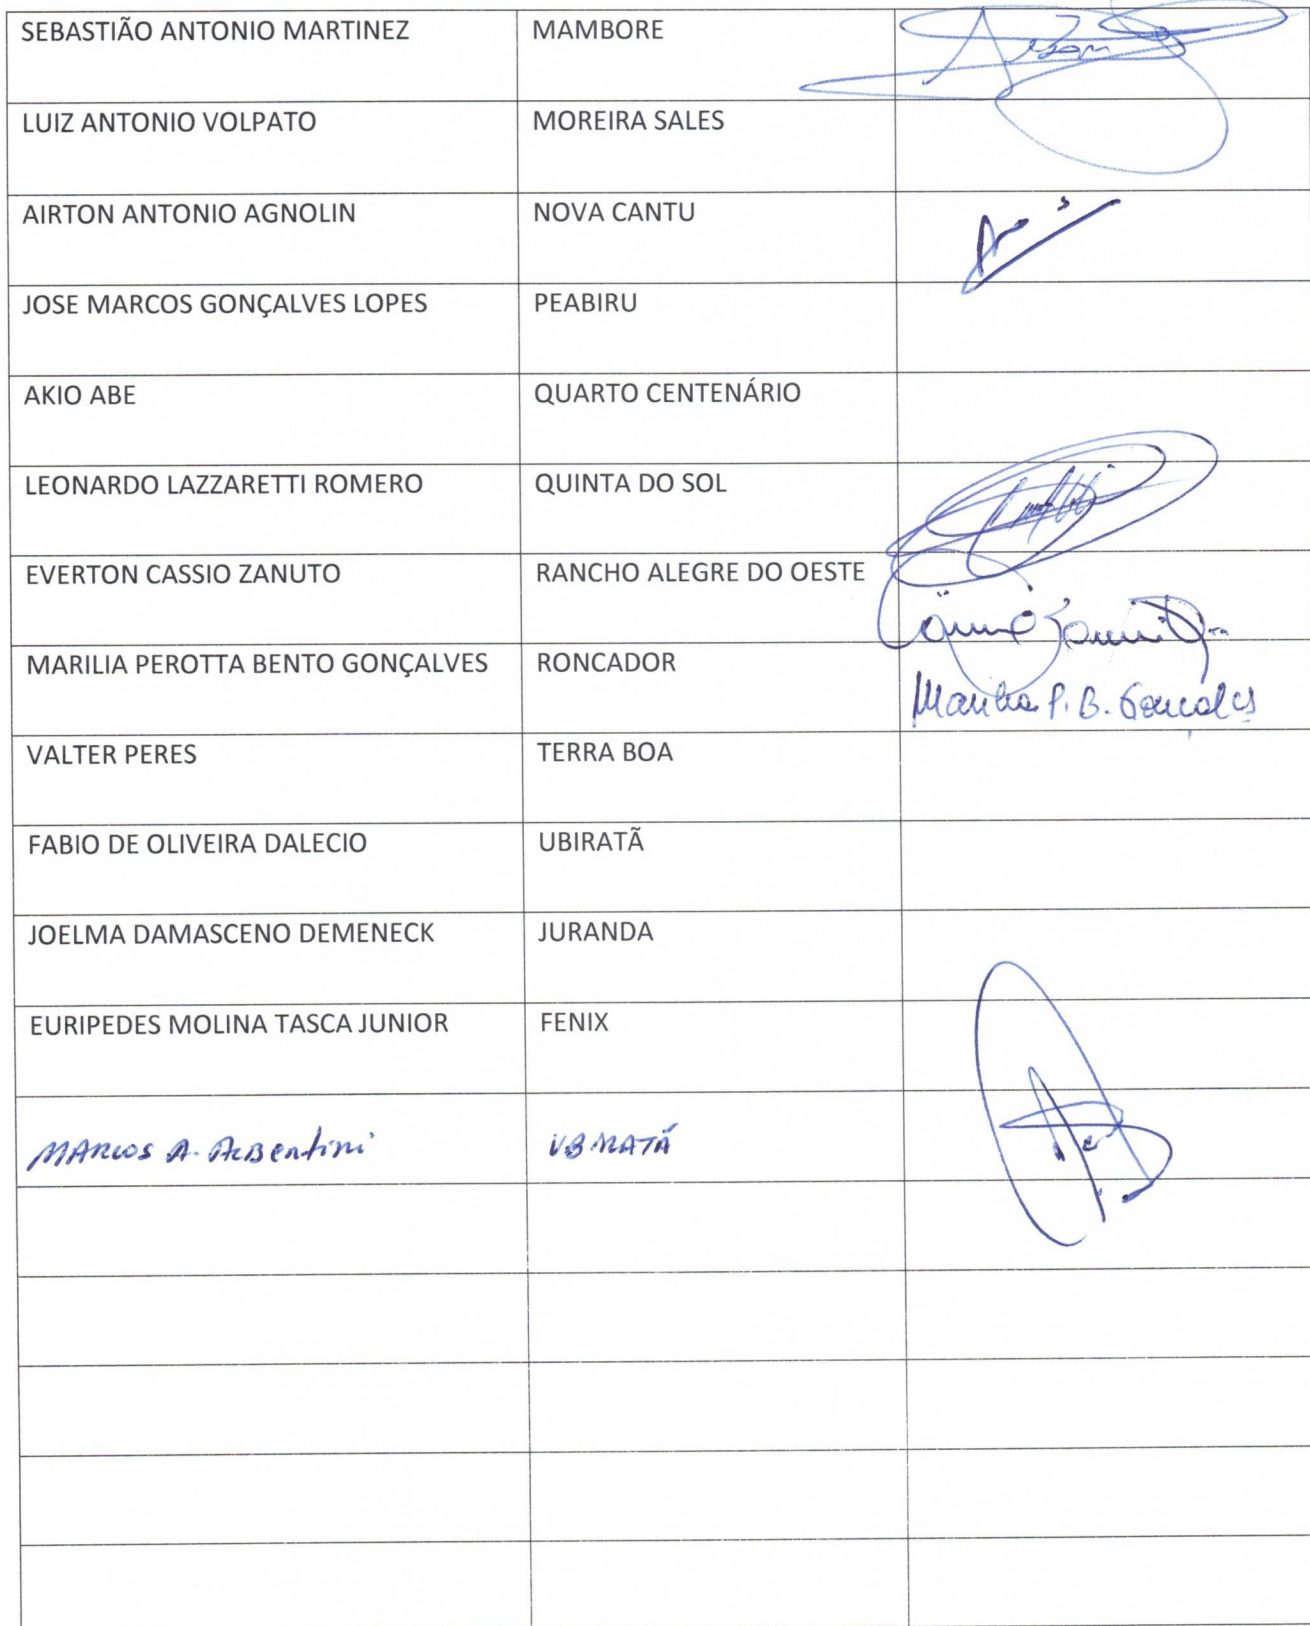 SEBASTIÃO ANTONIO MARTINEZ MAMBORE
LUIZ ANTONIO VOLPATO MOREIRA SALES
AIRTON ANTONIO AGNOLIN NOVA CANTU
JOSE MARCOS GONÇALVES LOPES PEABIRU
AKIO ABE QUARTO CENTENÁRIO
LEONARDO LAZZARETTI ROMERO QUINTA DO SOL
EVERTON CASSIO ZANUTO RANCHO ALEGRE DO OESTE
MARILIA PEROTTA BENTO GONÇALVES RONCADOR Marilia P. B. Goncalves
VALTER PERES TERRA BOA
FABIO DE OLIVEIRA DALECIO UBIRATÃ
JOELMA DAMASCENO DEMENECK JURANDA
EURIPEDES MOLINA TASCA JUNIOR FENIX
MARCOS A. ALBERTINI UBIRATÃ